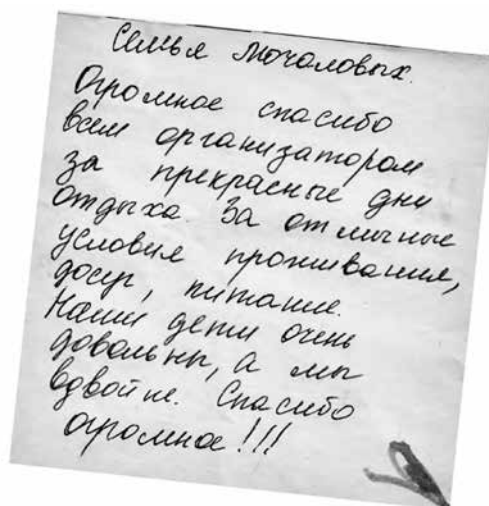 Семья Мочаловых.
Огромное спасибо
всем организатором
за прекрасные дни
отдыха. За отличные
условия проживания,
досуг, питание.
Наши дети очень
довольны, а мы
вдвойне. Спасибо
огромное!!!